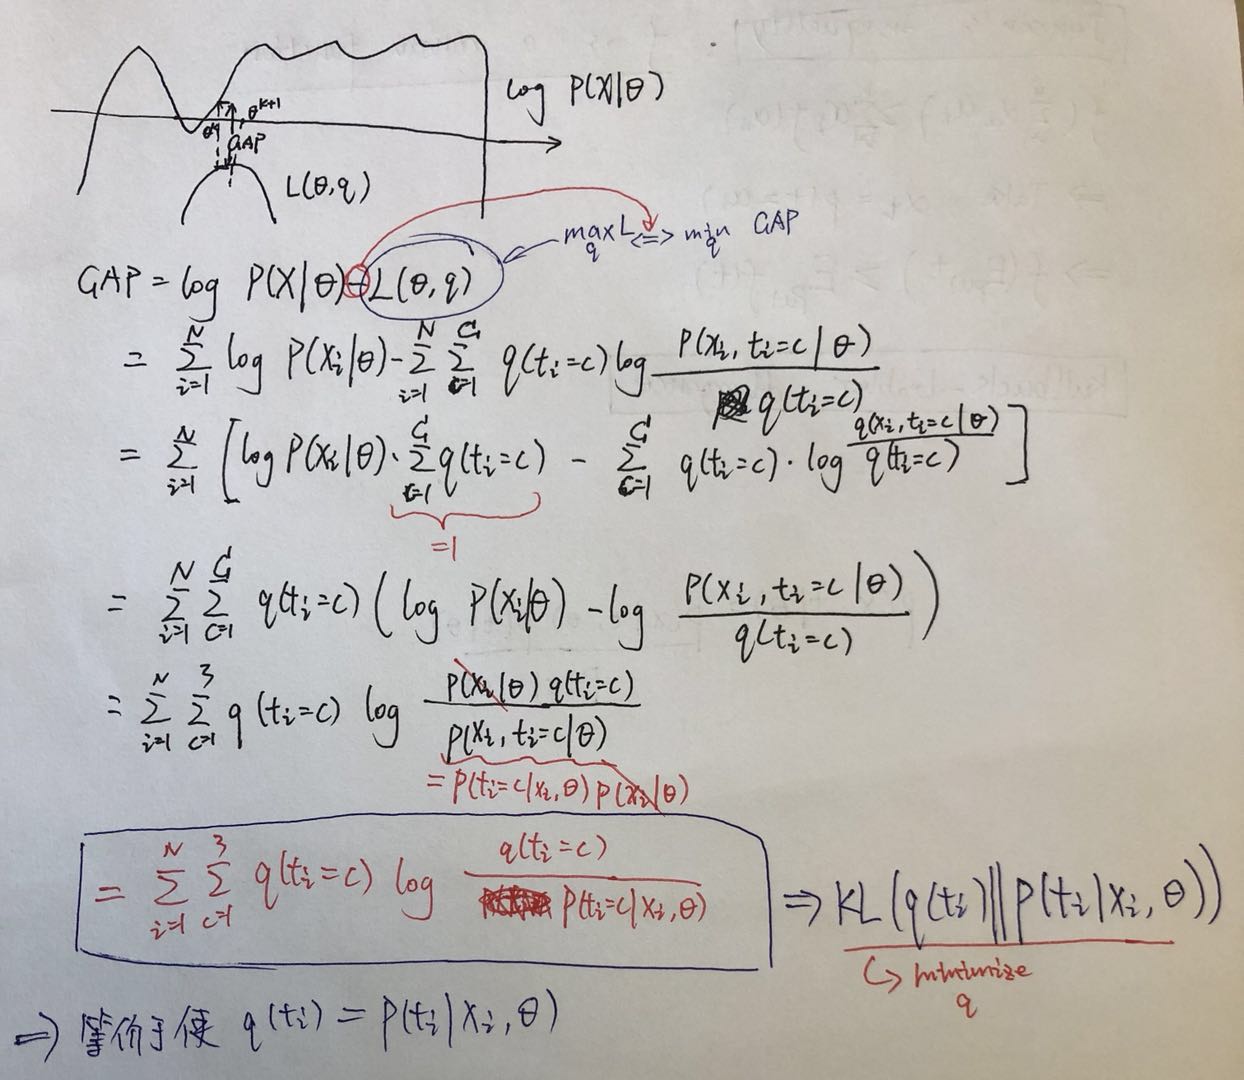 log P(X|θ)
θ^{k+1}
GAP
L(θ,q)
max_q L <=> min_q GAP
GAP = log P(X|θ) - L(θ,q)
= Σ_{i=1}^{N} log P(xi|θ) - Σ_{i=1}^{N} Σ_{c=1}^{C} q(ti=c) log P(xi, ti=c|θ) / q(ti=c)
= Σ_{i=1}^{N} [log P(xi|θ) · Σ_{c=1}^{C} q(ti=c) - Σ_{c=1}^{C} q(ti=c) · log q(xi, ti=c|θ) / q(ti=c)]
=1
= Σ_{i=1}^{N} Σ_{c=1}^{C} q(ti=c) (log P(xi|θ) - log P(xi, ti=c|θ) / q(ti=c))
= Σ_{i=1}^{N} Σ_{c=1}^{3} q(ti=c) log P(xi|θ) q(ti=c) / P(xi, ti=c|θ)
= P(ti=c|xi,θ) P(xi|θ)
= Σ_{i=1}^{N} Σ_{c=1}^{3} q(ti=c) log q(ti=c) / P(ti=c|xi,θ)
⇒ KL(q(ti)||P(ti|xi,θ))
minimize
q
⇒ 等价于使 q(ti) = P(ti|xi,θ)